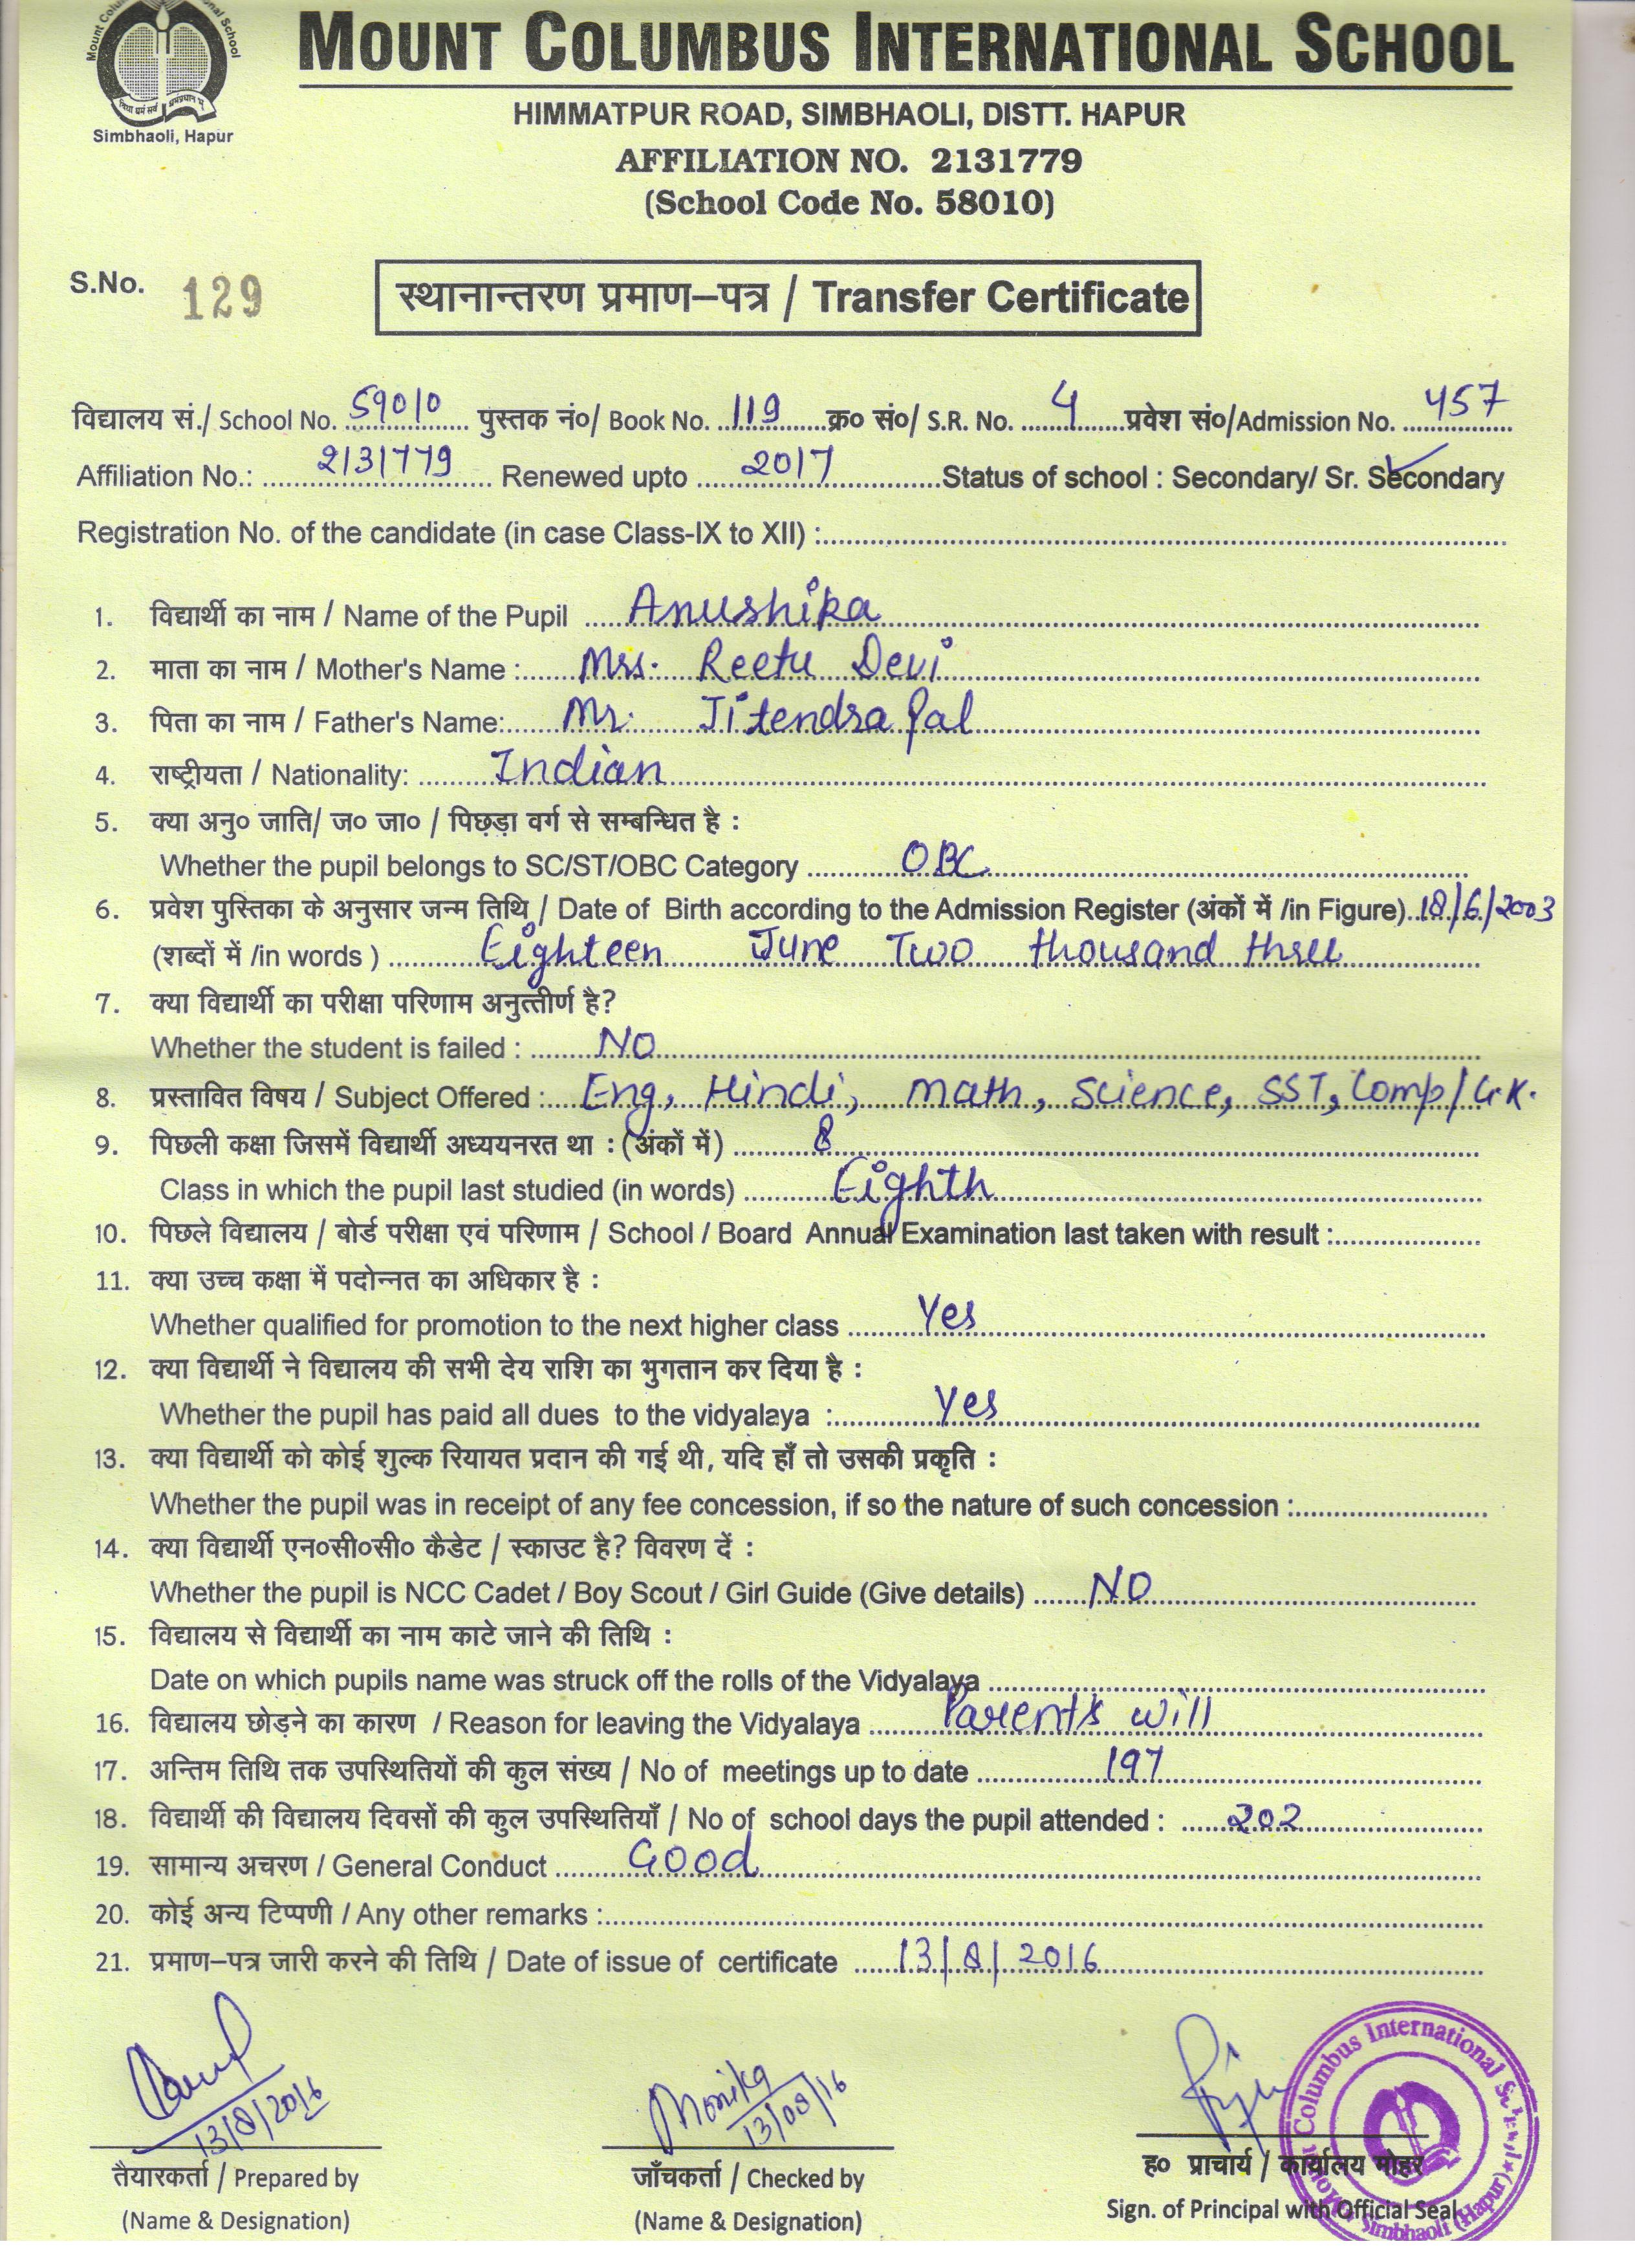 Mount Columbus International School
Simbhaoli, Hapur
MOUNT COLUMBUS INTERNATIONAL SCHOOL
HIMMATPUR ROAD, SIMBHAOLI, DISTT. HAPUR
AFFILIATION NO. 2131779
(School Code No. 58010)
S.No. 129
स्थानान्तरण प्रमाण–पत्र / Transfer Certificate
विद्यालय सं./ School No. 59010 पुस्तक नं०/ Book No. 119 क्र० सं०/ S.R. No. 4 प्रवेश सं०/Admission No. 457
Affiliation No.: 2131779 Renewed upto 2017 Status of school : Secondary/ Sr. Secondary
Registration No. of the candidate (in case Class-IX to XII) :
1. विद्यार्थी का नाम / Name of the Pupil Anushika
2. माता का नाम / Mother's Name : Mrs. Reetu Devi
3. पिता का नाम / Father's Name: Mr. Jitendra Pal
4. राष्ट्रीयता / Nationality: Indian
5. क्या अनु० जाति/ ज० जा० / पिछड़ा वर्ग से सम्बन्धित है :
Whether the pupil belongs to SC/ST/OBC Category OBC
6. प्रवेश पुस्तिका के अनुसार जन्म तिथि / Date of Birth according to the Admission Register (अंकों में /in Figure) 18/6/2003
(शब्दों में /in words ) Eighteen June Two thousand three
7. क्या विद्यार्थी का परीक्षा परिणाम अनुत्तीर्ण है?
Whether the student is failed : NO
8. प्रस्तावित विषय / Subject Offered : Eng, Hindi, math, science, SST, Comp/G.K.
9. पिछली कक्षा जिसमें विद्यार्थी अध्ययनरत था : (अंकों में) 8
Class in which the pupil last studied (in words) Eighth
10. पिछले विद्यालय / बोर्ड परीक्षा एवं परिणाम / School / Board Annual Examination last taken with result :
11. क्या उच्च कक्षा में पदोन्नत का अधिकार है :
Whether qualified for promotion to the next higher class Yes
12. क्या विद्यार्थी ने विद्यालय की सभी देय राशि का भुगतान कर दिया है :
Whether the pupil has paid all dues to the vidyalaya : Yes
13. क्या विद्यार्थी को कोई शुल्क रियायत प्रदान की गई थी, यदि हाँ तो उसकी प्रकृति :
Whether the pupil was in receipt of any fee concession, if so the nature of such concession :
14. क्या विद्यार्थी एन०सी०सी० कैडेट / स्काउट है? विवरण दें :
Whether the pupil is NCC Cadet / Boy Scout / Girl Guide (Give details) NO
15. विद्यालय से विद्यार्थी का नाम काटे जाने की तिथि :
Date on which pupils name was struck off the rolls of the Vidyalaya
16. विद्यालय छोड़ने का कारण / Reason for leaving the Vidyalaya Parent's will
17. अन्तिम तिथि तक उपस्थितियों की कुल संख्य / No of meetings up to date 197
18. विद्यार्थी की विद्यालय दिवसों की कुल उपस्थितियाँ / No of school days the pupil attended : 202
19. सामान्य अचरण / General Conduct Good
20. कोई अन्य टिप्पणी / Any other remarks :
21. प्रमाण–पत्र जारी करने की तिथि / Date of issue of certificate 13/8/2016
13/8/2016
Monika
13/08/16
तैयारकर्ता / Prepared by
(Name & Designation)
जाँचकर्ता / Checked by
(Name & Designation)
ह० प्राचार्य / कार्यालय मोहर
Sign. of Principal with Official Seal
Columbus International School
Simbhaoli (Hapur)